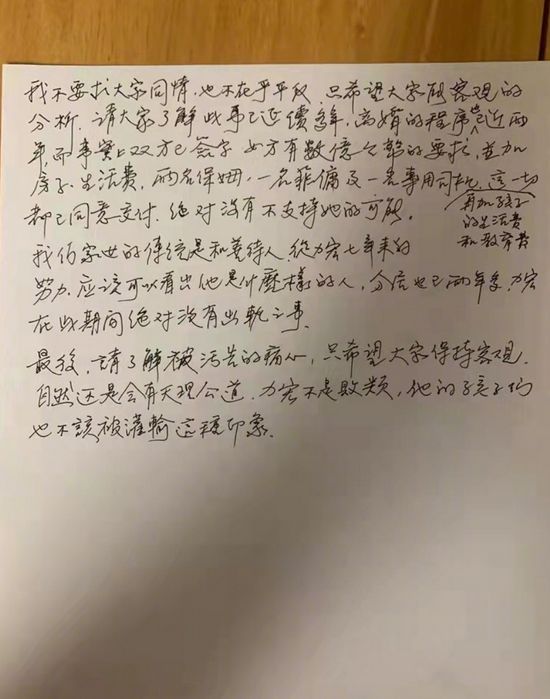 我不要求大家同情,也不在乎平反,只希望大家能客观的
分析.請大家了解此事已延續多年,离婚的程序也近两
年,而事實上双方已簽字.女方有数億台幣的要求,並加
房子.生活費,两名保姆,一名菲傭及一名專用司机.這一切
再加孩子
的生活费
和教育费
都已同意交付.绝对沒有不支持她的可能.
我们家世的傳統是和善待人.從力宏七年来的
努力.应該可以看出他是什麼樣的人,分居也已两年多,力宏
在此期间绝对沒有出軌之事.
最後,請了解被污告的痛心,只希望大家保持客观.
自然还是会有天理公道.力宏不是敗類,他的孩子们
也不該被灌輸這種印象.